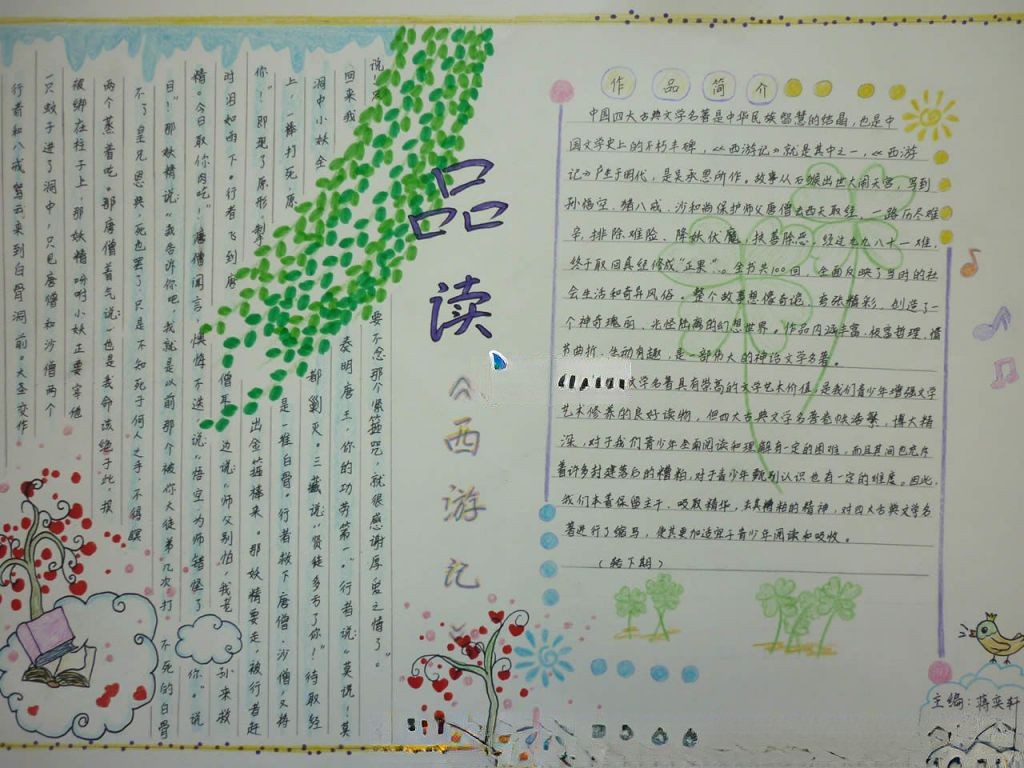 行者和八戒驾云来到白骨洞前。大圣变作
一只蚊子进了洞中,只见唐僧和沙僧两个
被绑在柱子上,那妖精吩咐小妖正要宰他
两个蒸着吃。那唐僧着气说:“也是我命该绝于此,挨
不了皇兄恩典,死也罢了,只是不知死于何人之手,不得瞑
目!”那妖精说:“我告诉你吧,我就是以前那个被你大徒弟几次打不死的白骨
精。今日取你肉吃!”唐僧闻言,懊悔不迭,说:“悟空,为师错怪了你。”说
时泪如雨下。行者飞到唐僧耳边说:“师父别怕,我老孙来救
你!”即现了原形,掣出金箍棒来。那妖精要走,被行者赶
上,一棒打死,原是一堆白骨。行者救下唐僧、沙僧,又将
洞中小妖全都剿灭。三藏说:“贤徒多亏了你!待取经
回来,我奏明唐王,你的功劳第一。”行者说:“莫说!莫
说!只要不念那个紧箍咒,就很感谢厚爱之情了。”
品读《西游记》
作品简介
中国四大古典文学名著是中华民族智慧的结晶,也是中
国文学史上的不朽丰碑,《西游记》就是其中之一,《西游
记》产生于明代,是吴承恩所作。故事从石猴出世大闹天宫,写到
孙悟空、猪八戒、沙和尚保护师父唐僧去西天取经,一路历尽艰
辛,排除难险、降妖伏魔,扶善除恶。经过九九八十一难,
终于取回真经修成“正果”。全书共100回,全面反映了当时的社
会生活和奇异风俗。整个故事想像奇诡,夸张精彩,创造了一
个神奇瑰丽,光怪陆离的幻想世界。作品内涵丰富、极富哲理,情
节曲折、生动有趣,是一部伟大的神话文学名著。
文学名著具有崇高的文学艺术价值,是我们青少年增强文学
艺术修养的良好读物,但四大古典文学名著卷帙浩繁,博大精
深,对于我们青少年全面阅读和理解有一定的困难,而且其间也充斥
着许多封建落后的糟粕,对于青少年甄别认识也有一定的难度。因此,
我们本着保留主干、吸取精华、去其糟粕的精神,对四大古典文学名
著进行了缩写,使其更加适宜于青少年阅读和吸收。
(转下期)
主编:蒋奕轩